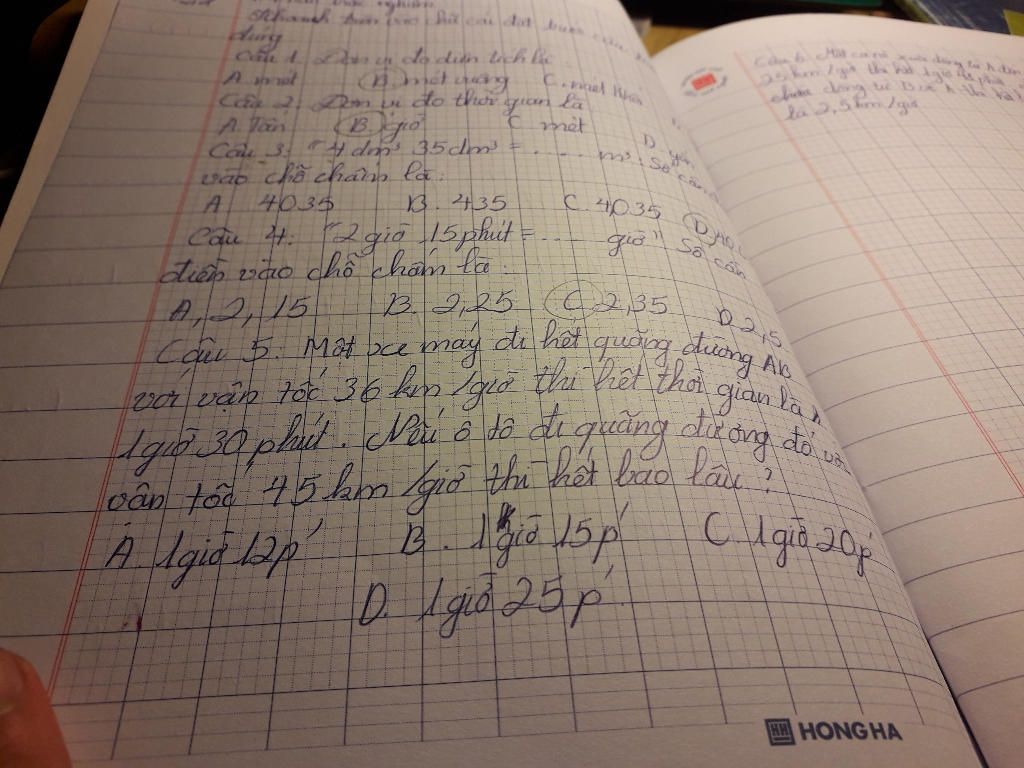 Khoanh tròn vào chữ cái đặt trước câu
đúng
Câu 1. Đơn vị đo diện tích là
A mét B mét vuông C. mét khối
Câu 2. Đơn vị đo thời gian là
A Tấn B giờ C mét D
Câu 3: "4dm³ 35dm³ = ..... m³. Số cần
vào chỗ chấm là:
A 4035 B. 435 C. 4035 D
Câu 4: "2 giờ 15 phút = ..... giờ" Số cần
điền vào chỗ chấm là:
A, 2,15 B. 2,25 C 2,35 D. 2,5
Câu 5. Một xe máy đi hết quãng đường AB
với vận tốc 36 km/giờ thì hết thời gian là
1 giờ 30 phút. Nếu ô tô đi quãng đường đó với
vận tốc 45 km/giờ thì hết bao lâu?
A 1 giờ 12p' B. 1 giờ 15p' C 1 giờ 20p'
D. 1 giờ 25p'
HONG HA
Câu 6. Một ca nô xuôi dòng từ A đến
25 km/giờ thì hết 1 giờ
dòng từ B về A thì hết
là 2,5 km/giờ